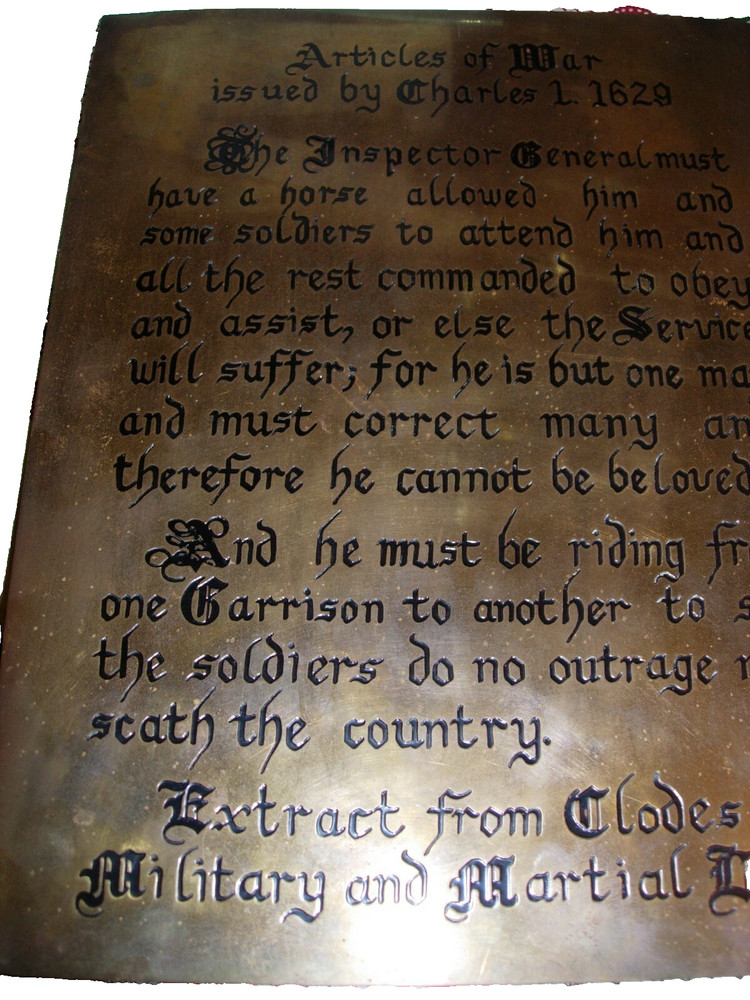 Articles of War
issued by Charles 1. 1629
The Inspector General must
have a horse allowed him and
some soldiers to attend him and
all the rest commanded to obey
and assist, or else the Service
will suffer; for he is but one ma
and must correct many an
therefore he cannot be beloved
And he must be riding fr
one Garrison to another to s
the soldiers do no outrage n
scath the country.
Extract from Clodes
Military and Martial L